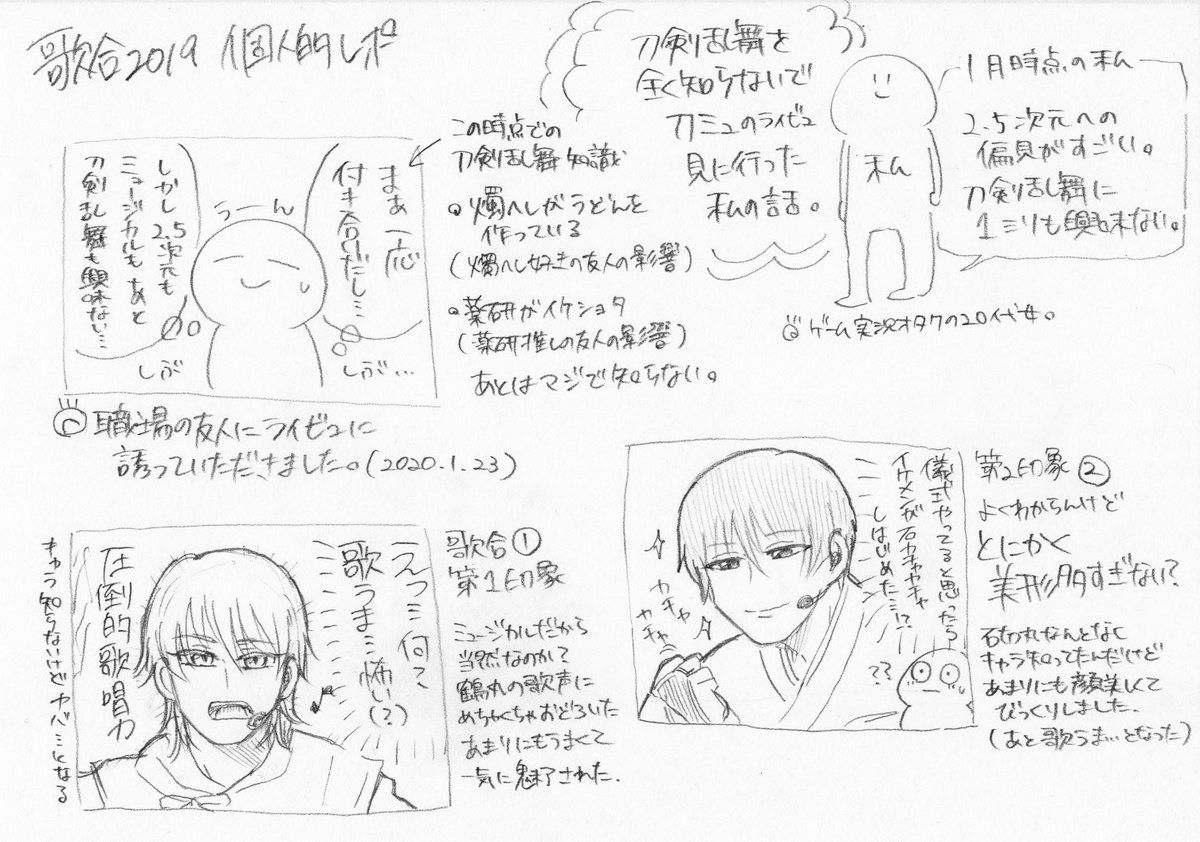 歌合2019 個人的レポ
刀剣乱舞を
全く知らないで
刀ミュのライビュ
見に行った
私の話。
私
1月時点の私
2.5次元への
偏見がすごい。
刀剣乱舞に
1ミリも興味ない。
ゲーム実況オタクの20代女。
まぁ一応
付き合いだし…
うーん
しかし2.5次元も
ミュージカルもあと
刀剣乱舞も興味ない…
しぶ
しぶ…
この時点での
刀剣乱舞知識
燭へしがうどんを
作っている
(燭へし好きの友人の影響)
薬研がイケショタ
(薬研推しの友人の影響)
あとはマジで知らない。
職場の友人にライビュに
誘っていただきました。(2020.1.23)
えっ…何?
歌うま…怖い(?)
圧倒的歌唱力
キャラ知らないけどヤバ…となる
歌合①
第1印象
ミュージカルだから
当然なのか?
鶴丸の歌声に
めちゃくちゃおどろいた
あまりにもうまくて
一気に魅了された.
儀式やってると思ったら
イケメンが石カチャカチャ
しはじめた…!?
カチャ
カチャ
??
第2印象②
よくわからんけど
とにかく
美形多すぎない?
石切丸なんとなく
キャラ知ってたんだけど
あまりにも顔美しくて
びっくりしました.
(あと歌うま…となった)